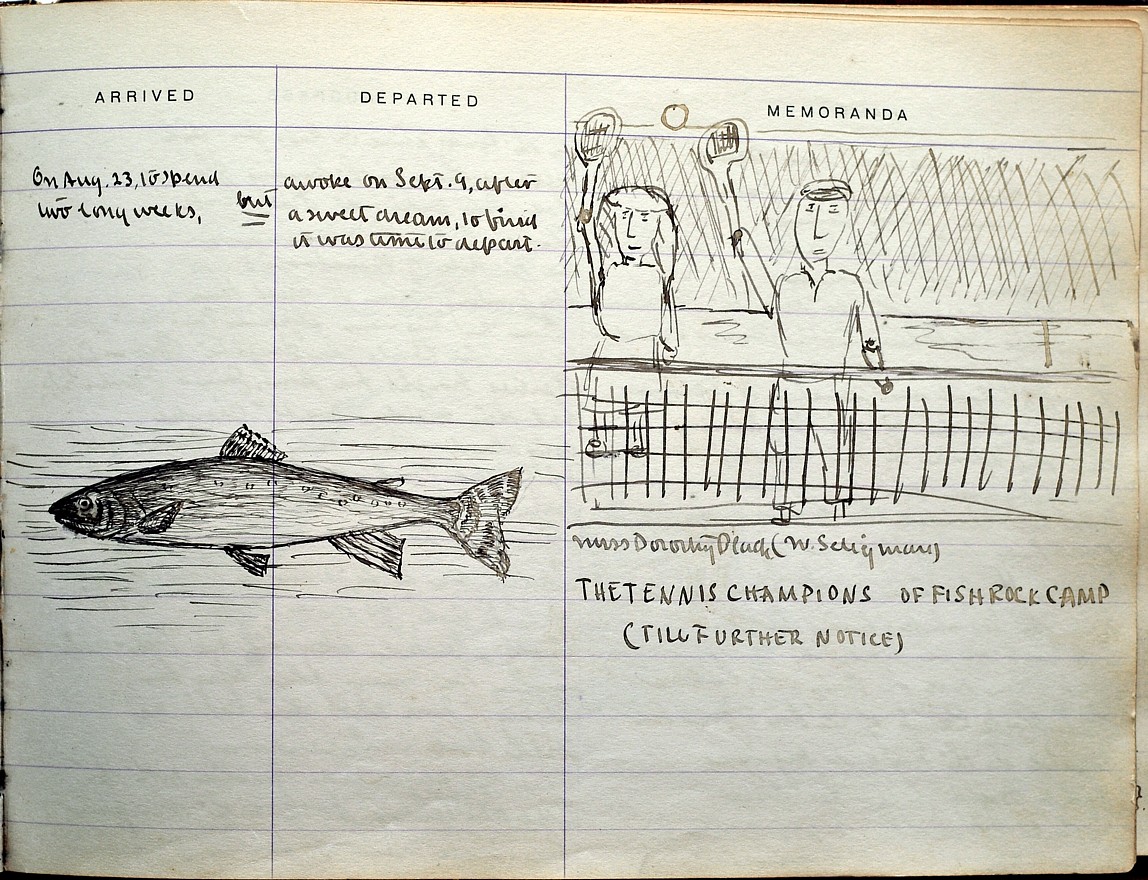 ARRIVED
DEPARTED
MEMORANDA
On Aug. 23, to spend
two long weeks,
but
awoke on Sept. 9, after
a sweet dream, to find
it was time to depart.
Miss Dorothy (W. Seligman)
THE TENNIS CHAMPIONS OF FISH ROCK CAMP
(TILL FURTHER NOTICE)